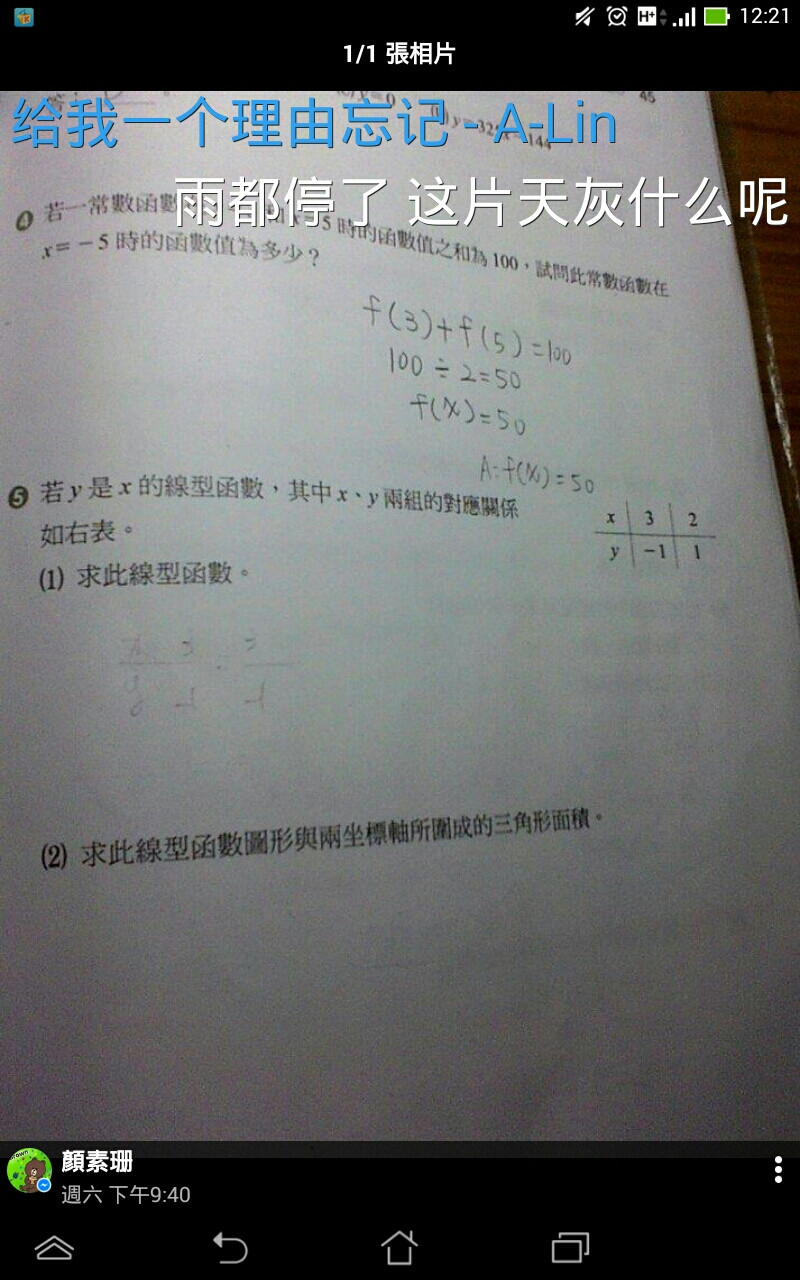 12:21
1/1 張相片
45
给我一个理由忘记 - A-Lin
雨都停了 这片天灰什么呢
❹ 若一常數函數 5 時的函數值之和為 100，試問此常數函數在
x = －5 時的函數值為多少？
f(3)+f(5)=100
100÷2=50
f(x)=50
A:f(x)=50
❺ 若 y 是 x 的線型函數，其中 x、y 兩組的對應關係
如右表。
x 3 2
y −1 1
(1) 求此線型函數。
(2) 求此線型函數圖形與兩坐標軸所圍成的三角形面積。
顏素珊
週六 下午9:40